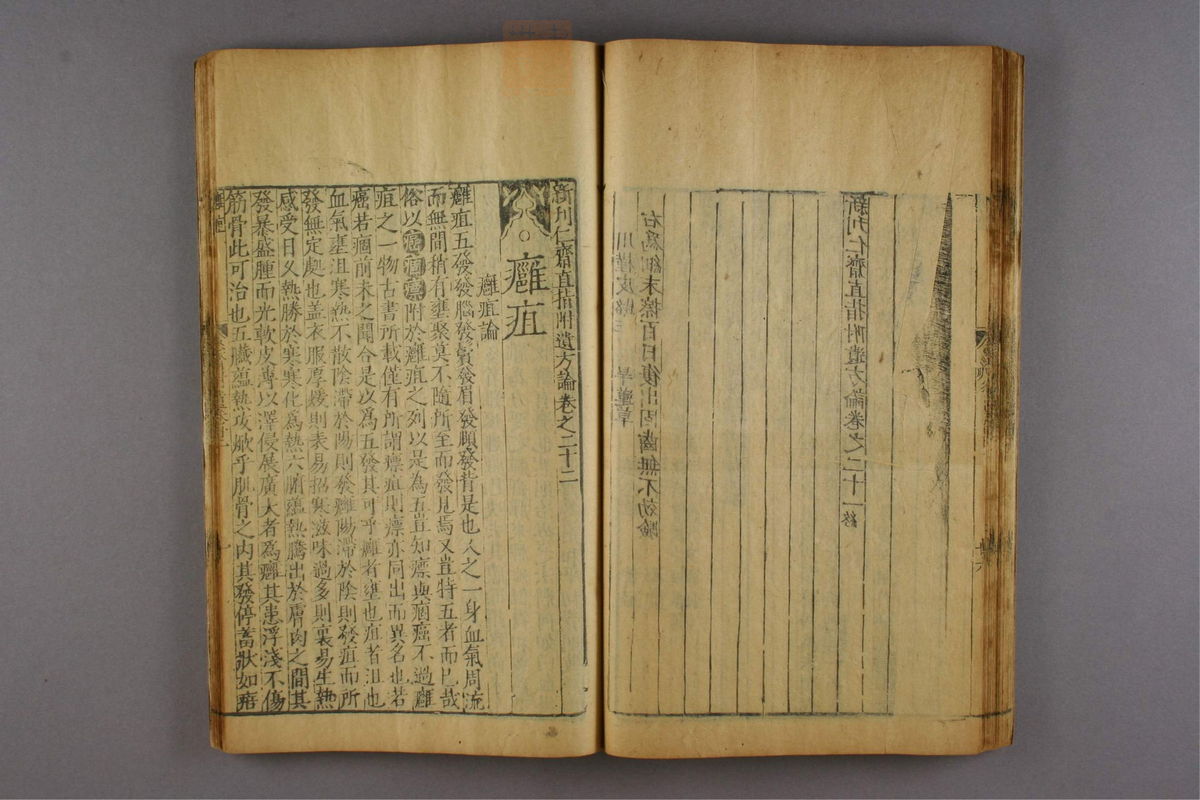 川槿皮 旱蓮草
右為細末擦百日後出固齒無不効驗
新刊仁齋直指附遺方論卷之二十一終
新刊仁齋直指附遺方論卷之二十二
癰疽
癰疽論
癰疽五發發腦發鬢發眉發顋發背是也人之一身血氣周流
而無間稍有壅聚莫不隨所至而發見焉又豈特五者而已哉
俗以癌痼瘭附於癰疽之列以是為五豈知瘭與痼癌不過癰
疽之一物古書所載僅有所謂瘭疽則瘭亦同出而異名也若
癌若痼前未之聞合是以為五發其可乎癰者壅也疽者沮也
血氣壅沮寒熱不散陰滯於陽則發癰陽滯於陰則發疽而所
發無定處也盖衣服厚煖則表易招寒滋味過多則裏易生熱
感受日久熱勝於寒寒化為熱六腑蘊熱騰出於膚肉之間其
發暴盛腫而光軟皮薄以澤侵展廣大者為癰其患浮淺不傷
筋骨此可治也五臟蘊熱攻焮乎肌骨之内其發停蓄狀如痦